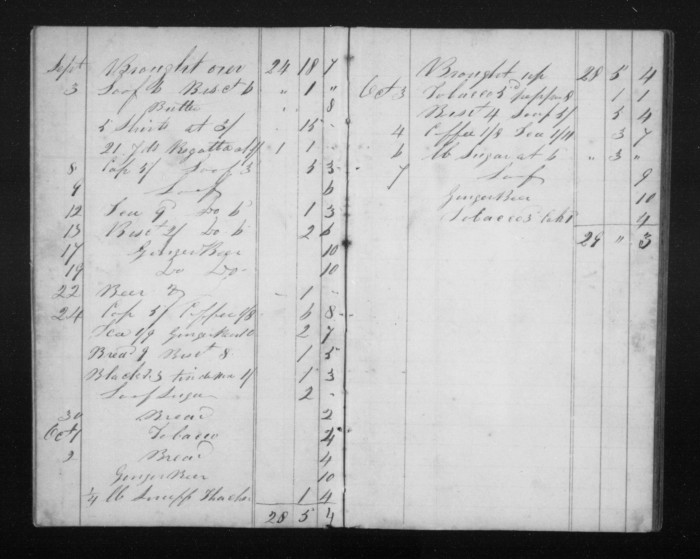 Sept Brought over 24 18 7
3 Loaf 6 Bisct 6 " 1 "
Butter 8
5 Shirts at 3/ 15 -
21 Yds Regatta at 1/ 1 1 -
8 Cap 5/ Loaf 3 5 3
9 Loaf 6
12 Tea 9 Do 6 1 3
13 Bisct 2/ Do 6 2 6
17 Ginger Beer 10
19 Do Do 10
22 Beer - 1 -
24 Cap 5/ Coffee 1/8 6 8
Tea 1/9 Ginger Beer 10 2 7
Bread 9 Bisct 8 1 5
Black 3 1/ 1 3
Loaf Sugar 2 -
30 Bread 2
Oct 1 Tobacco 4
2 Bread 4
Ginger Beer 10
1/4 lb Snuff 1 4
28 5 4
Brought up 28 5 4
Oct 3 Tobacco 5 pepper 8 1 1
Bisct 4 Loaf 5/ 5 4
4 Coffee 1/8 Tea 1/11 3 7
6 lb Sugar at 6 " 3 "
7 Loaf 9
Ginger Beer 10
Tobacco 4
29 " 3